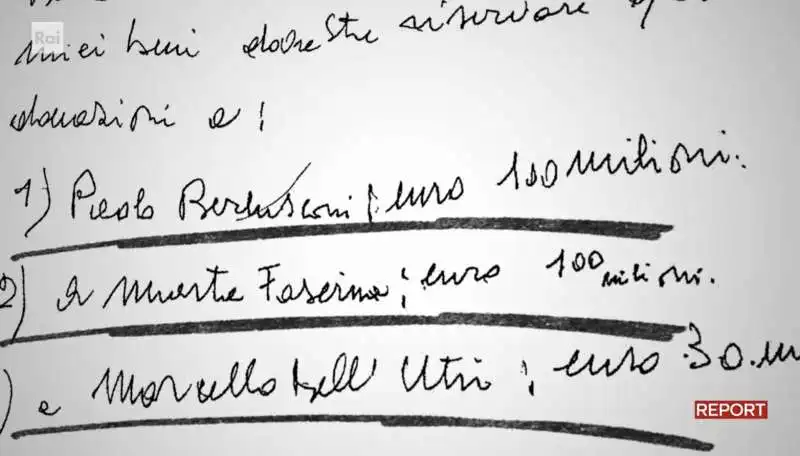 Rai
miei beni dovreste riservare
donazioni a:
1) Paolo Berlusconi; euro 100 milioni.
2) a Marta Fascina; euro 100 milioni.
) a Marcello Dell'Utri; euro 30. m
REPORT